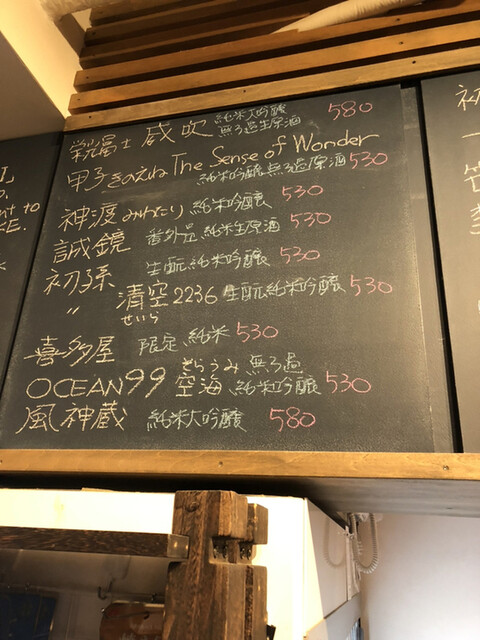 純米大吟醸
無ろ過生原酒 580
甲子きのえね The Sense of Wonder
純米吟醸無ろ過原酒 530
神渡みわたり 純米吟醸 530
誠鏡 番外品 純米生原酒 530
初孫 生酛純米吟醸 530
〃 清空2236 生酛純米吟醸 530
せいら
喜多屋 限定純米 530
そらうみ 無ろ過
OCEAN99 空海 純米吟醸 530
風神蔵 純米大吟醸 580